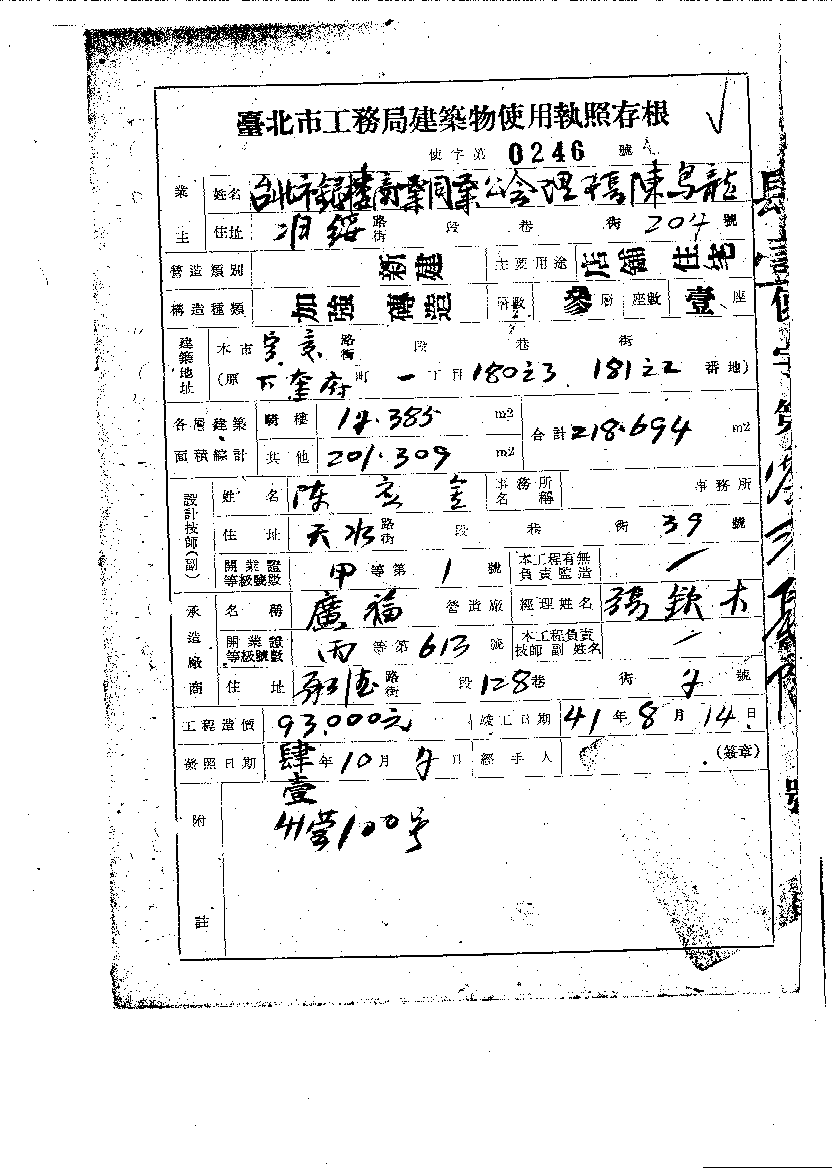 臺北市工務局建築物使用執照存根
使字第 0246 號
業主 姓名 台北市銀樓商業同業公會理事長陳烏龍
住址 路街 段 巷 街 204 號
營造類別 新建 主要用途 店舖住宅
構造種類 加強磚造 層數 參層 座數 壹座
建築地址 本市 路街 段 巷 街
(原 下奎府町一丁目180之3 181之2 番地)
各層建築面積總計 騎樓 17.385 m2 合計 218.694 m2
其他 201.309 m2
設計技師(副) 姓名 陳 金 事務所名稱 事務所
住址 天水路街 段 巷 街 39 號
開業證等級號數 甲等第 1 號 本工程有無負責監造
承造廠商 名稱 廣福 營造廠 經理姓名 張欽木
開業證等級號數 丙等第 613 號 本工程負責技師副姓名
住址 路街 段 128巷 街 號
工程造價 93,000元 竣工日期 41年8月14日
發照日期 肆壹年10月 日 經手人 (簽章)
附註 41營100号